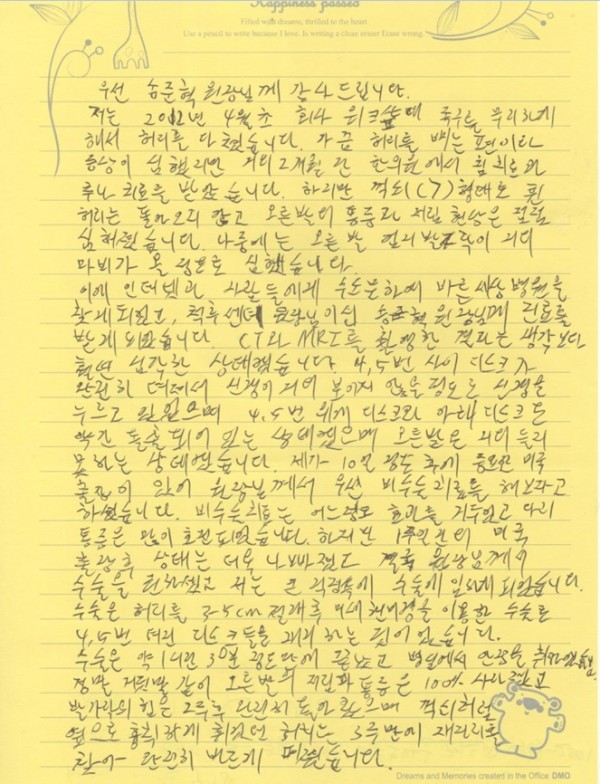 Happiness passed
Filled with dreams, thrilled to the heart
Use a pencil to write because I love. Is writing a clean eraser Erase wrong.
우선 송준혁 원장님께 감사드립니다.
저는 2012년 4월초 회사 워크샵때 족구를 무리하게
해서 허리를 다쳤습니다. 가끔 허리를 삐는 편이라
증상이 심했지만 거의 2개월 간 한의원에서 침치료와
치료를 받았습니다. 하지만 꺽쇠(7)형태로 휜
허리는 돌아오지 않고 오른발의 통증과 저림 현상은 점점
심해졌습니다. 나중에는 오른발 발가락이 거의
마비가 올 정도로 심했습니다.
이에 인터넷과 사람들에게 수소문하여 바른세상병원을
찾게되었고, 척추센터 원장님이신 송준혁 원장님께 진료를
받게 되었습니다. CT와 MRI를 촬영한 결과는 생각보다
훨씬 심각한 상태였습니다. 4,5번 사이 디스크가
완전히 터져서 신경이 거의 보이지 않을 정도로 신경을
누르고 있었으며 4,5번 위에 디스크와 아래 디스크도
약간 돌출되어 있는 상태였으며 오른발은 거의 들지
못하는 상태였습니다. 제가 10일 정도 후에 중요한 미국
출장이 있어 원장님께서 우선 비수술치료를 해보자고
하셨습니다. 비수술치료는 어느정도 효과를 거두었고 다리
통증은 많이 호전되었습니다. 하지만 1주일간의 미국
출장후 상태는 더욱 나빠졌고 결국 원장님께서
수술을 권하셨고 저는 큰 걱정속에 수술에 임하게 되었습니다.
수술은 허리를 3-5cm 절개후 미세현미경을 이용한 수술로
4,5번 터진 디스크들을 제거하는 것이었습니다.
수술은 약 1시간 30분 정도만에 끝났고 병실에서 안정을 취하였습니다.
정말 거짓말 같이 오른발의 저림과 통증은 100% 사라졌고
발가락의 힘은 2주후 완전히 돌아왔으며 꺽쇠처럼
옆으로 흉칙하게 휘었던 허리는 3주만에 제자리를
찾아 완전히 바르게 펴졌습니다.
Dreams and Memories created in the Office DMO